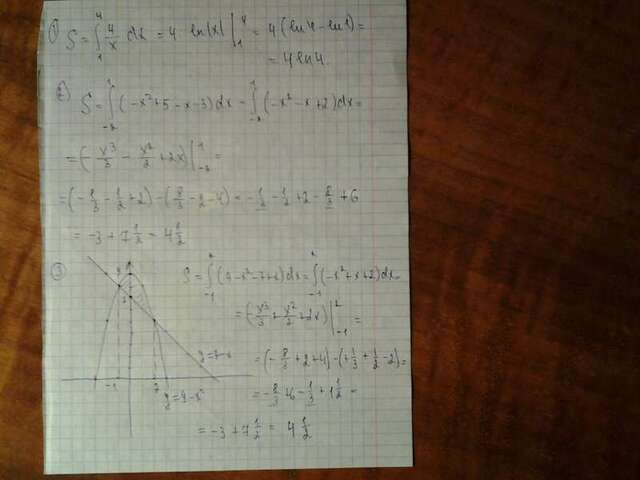 1) S = ∫₁⁴ 4/x dx = 4 ln|x| |₁⁴ = 4(ln4 - ln1) =
= 4 ln4.
2) S = ∫₋₂¹ (-x²+5-x-3)dx = ∫₋₂¹ (-x²-x+2)dx =
= (-x³/3 - x²/2 + 2x) |₋₂¹ =
= (-1/3 - 1/2 + 2) - (8/3 - 2 - 4) = -1/3 - 1/2 + 2 - 8/3 + 6
= -3 + 7 1/2 = 4 1/2
3) S = ∫₋₁² (4-x²-2+x)dx = ∫₋₁² (-x²+x+2)dx =
= (-x³/3 + x²/2 + 2x) |₋₁² =
= (-8/3 + 2 + 4) - (+1/3 + 1/2 - 2) =
= -8/3 + 6 - 1/3 + 1 1/2 =
= -3 + 7 1/2 = 4 1/2
-1
2
y=4-x²